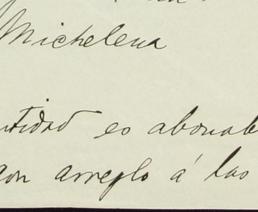 Michelena
ntidad es abonab
con arreglo á las